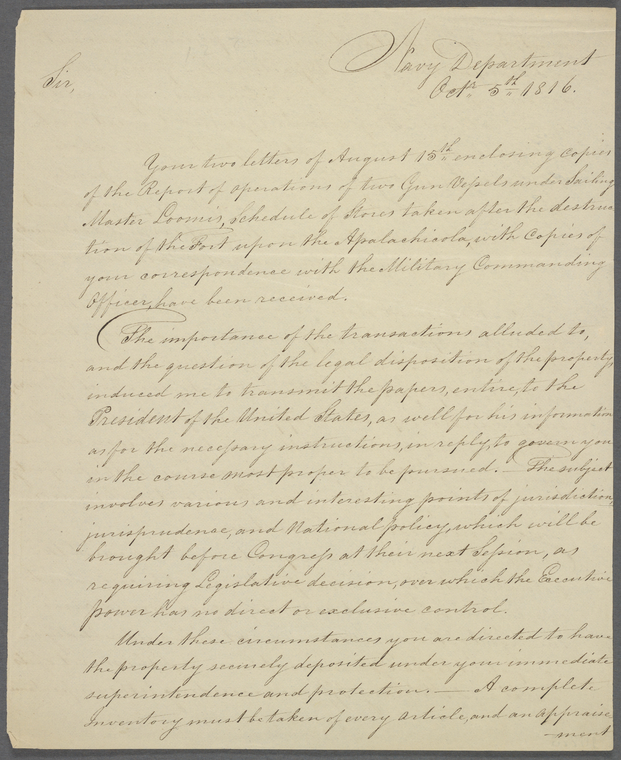 Navy Department
Octr. 5th 1816.
Sir,
Your two letters of August 15th enclosing copies
of the Report of operations of two Gun Vessels under Sailing
Master Loomis, Schedule of Stores taken after the destruc
tion of the Fort upon the Apalachicola, with Copies of
your correspondence with the Military Commanding
Officer, have been received.
The importance of the transactions alluded to,
and the question of the legal disposition of the property,
induced me to transmit the papers, entire, to the
President of the United States, as well for his information
as for the necessary instructions, in reply, to govern you
in the course most proper to be pursued. — The subject
involves various and interesting points of jurisdiction,
jurisprudence, and National policy, which will be
brought before Congress at their next Session, as
requiring Legislative decision, over which the Executive
power has no direct or exclusive control.
Under these circumstances you are directed to have
the property securely deposited under your immediate
superintendence and protection. — A complete
Inventory must be taken of every article, and an appraise
-ment